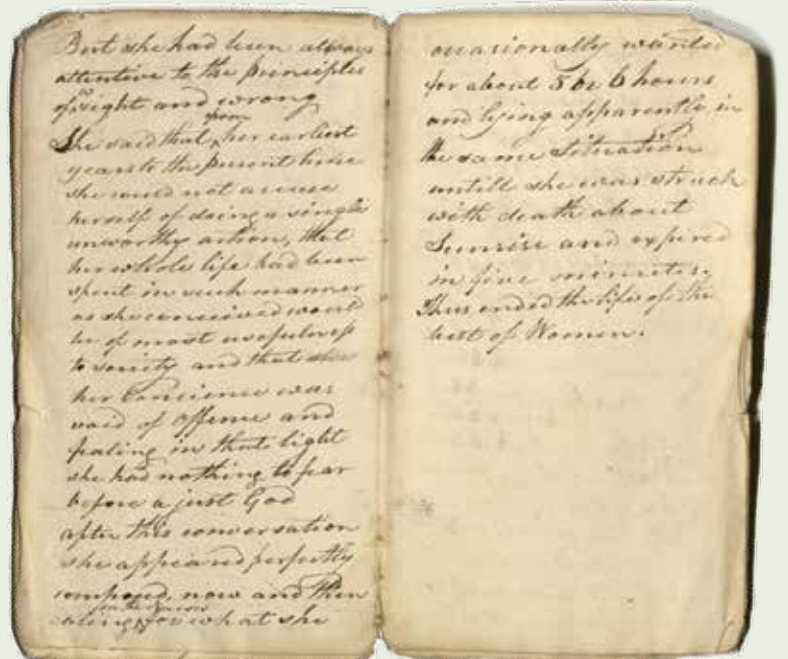 But she had been always
attentive to the principles
of right and wrong
from
She said that her earliest
years to the present time
she could not accuse
herself of doing a single
unworthy action, that
her whole life had been
spent in such manner
as she conceived would
be of most usefulness
to society and that
her Concience was
void of Offence and
in that light
she had nothing to fear
before a just God
after this conversation
she appeared perfectly
composed, now and then
for what she
occasionally wanted
for about 5 or 6 hours
and lying apparently in
the same Situation
untill she was struck
with death about
Sunrise and expired
in five minutes.
Thus ended the life of the
best of Women.